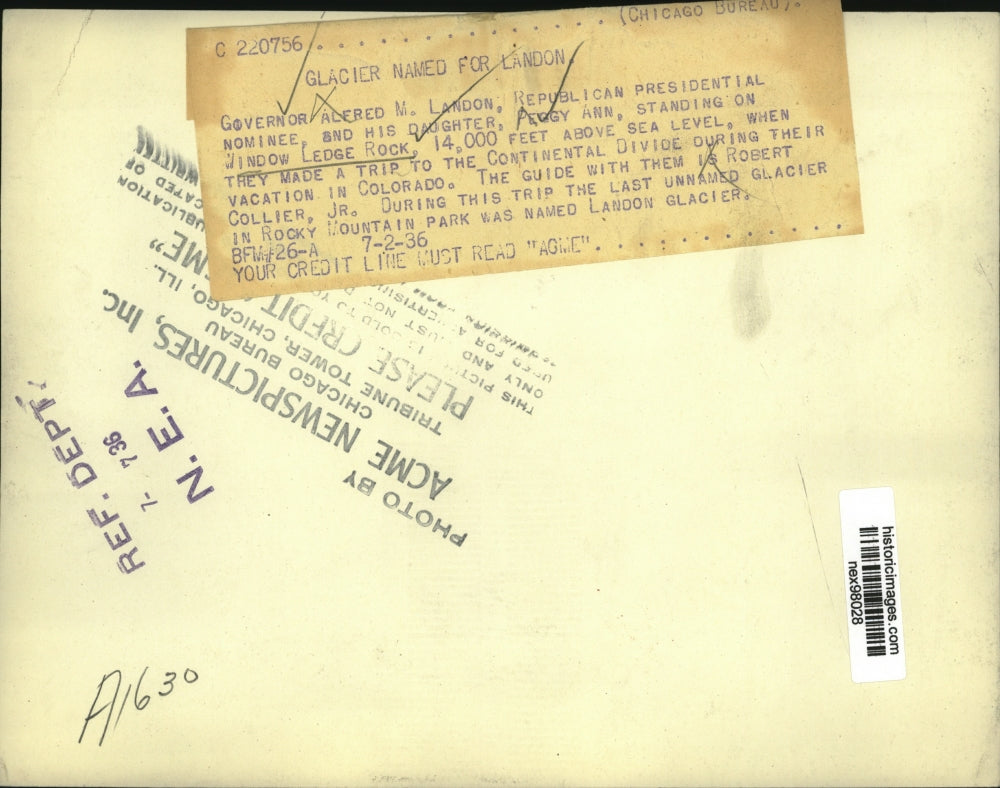 C 220756 . . . . . . . . . . . . . . (CHICAGO BUREAU).
GLACIER NAMED FOR LANDON.
GOVERNOR ALFRED M. LANDON, REPUBLICAN PRESIDENTIAL
NOMINEE, AND HIS DAUGHTER, PEGGY ANN, STANDING ON
WINDOW LEDGE ROCK, 14,000 FEET ABOVE SEA LEVEL, WHEN
THEY MADE A TRIP TO THE CONTINENTAL DIVIDE DURING THEIR
VACATION IN COLORADO. THE GUIDE WITH THEM IS ROBERT
COLLIER, JR. DURING THIS TRIP THE LAST UNNAMED GLACIER
IN ROCKY MOUNTAIN PARK WAS NAMED LANDON GLACIER.
BFM#26-A 7-2-36
YOUR CREDIT LINE MUST READ "ACME". . . . . . . . . . . .
PHOTO BY
ACME NEWSPICTURES, Inc.
CHICAGO BUREAU
TRIBUNE TOWER, CHICAGO, ILL.
PLEASE CREDIT "ME"
THIS PICT IS SOLD TO YO UBLICATION
ONLY AND UST NOT CATED OR
USED FOR A VERTISING
REF. DEPT.
7- 7 36
N. E. A.
A1630
historicimages.com
nex98028